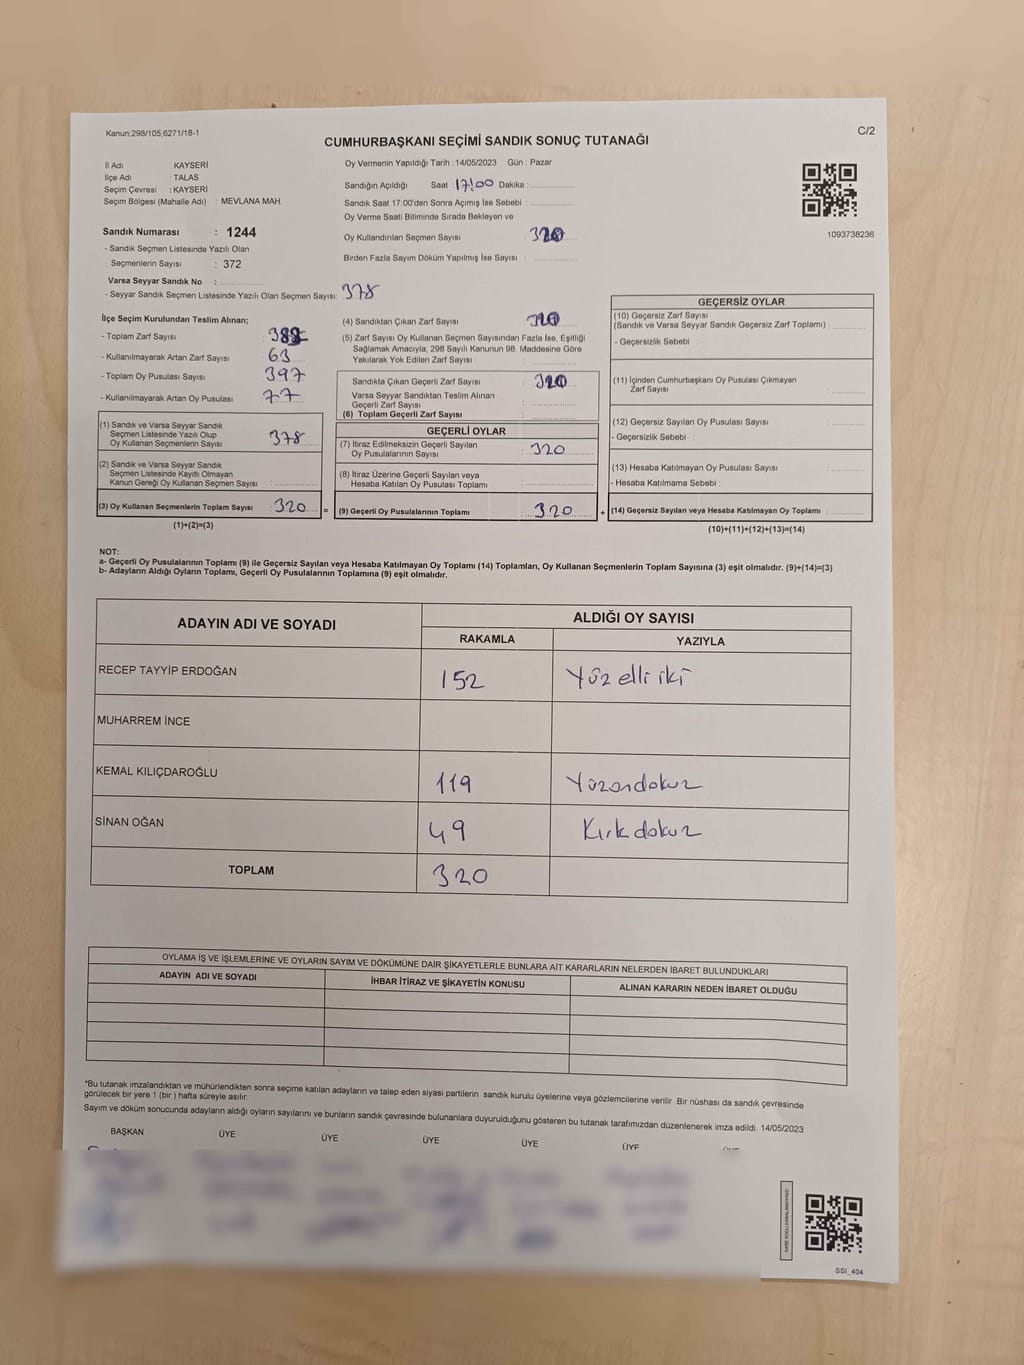 Kanun:298/105,6271/18-1
C/2
CUMHURBAŞKANI SEÇİMİ SANDIK SONUÇ TUTANAĞI
İl Adı KAYSERİ
İlçe Adı : TALAS
Seçim Çevresi : KAYSERİ
Seçim Bölgesi (Mahalle Adı) : MEVLANA MAH.
Sandık Numarası : 1244
- Sandık Seçmen Listesinde Yazılı Olan
Seçmenlerin Sayısı : 372
Varsa Seyyar Sandık No :
- Seyyar Sandık Seçmen Listesinde Yazılı Olan Seçmen Sayısı: 378
Oy Vermenin Yapıldığı Tarih : 14/05/2023 Gün : Pazar
Sandığın Açıldığı Saat : 17:00 Dakika :
Sandık Saat 17:00'den Sonra Açımış İse Sebebi :
Oy Verme Saati Bitiminde Sırada Bekleyen ve
Oy Kullandırılan Seçmen Sayısı : 320
Birden Fazla Sayım Döküm Yapılmış İse Sayısı :
1093738236
İlçe Seçim Kurulundan Teslim Alınan;
- Toplam Zarf Sayısı
- Kullanılmayarak Artan Zarf Sayısı : 63
- Toplam Oy Pusulası Sayısı : 397
- Kullanılmayarak Artan Oy Pusulası : 77
(1) Sandık ve Varsa Seyyar Sandık
Seçmen Listesinde Yazılı Olup
Oy Kullanan Seçmenlerin Sayısı : 378
(2) Sandık ve Varsa Seyyar Sandık
Seçmen Listesinde Kayıtlı Olmayan
Kanun Gereği Oy Kullanan Seçmen Sayısı :
(3) Oy Kullanan Seçmenlerin Toplam Sayısı : 320 =
(1)+(2)=(3)
(4) Sandıktan Çıkan Zarf Sayısı : 320
(5) Zarf Sayısı Oy Kullanan Seçmen Sayısından Fazla İse, Eşitliği
Sağlamak Amacıyla; 298 Sayılı Kanunun 98. Maddesine Göre
Yakılarak Yok Edilen Zarf Sayısı :
Sandıkta Çıkan Geçerli Zarf Sayısı : 320
Varsa Seyyar Sandıktan Teslim Alınan
Geçerli Zarf Sayısı :
(6) Toplam Geçerli Zarf Sayısı :
GEÇERLİ OYLAR
(7) İtiraz Edilmeksizin Geçerli Sayılan
Oy Pusulalarının Sayısı : 320
(8) İtiraz Üzerine Geçerli Sayılan veya
Hesaba Katılan Oy Pusulası Toplamı :
(9) Geçerli Oy Pusulalarının Toplamı : 320 +
GEÇERSİZ OYLAR
(10) Geçersiz Zarf Sayısı
(Sandık ve Varsa Seyyar Sandık Geçersiz Zarf Toplamı) :
- Geçersizlik Sebebi :
(11) İçinden Cumhurbaşkanı Oy Pusulası Çıkmayan
Zarf Sayısı :
(12) Geçersiz Sayılan Oy Pusulası Sayısı :
- Geçersizlik Sebebi :
(13) Hesaba Katılmayan Oy Pusulası Sayısı :
- Hesaba Katılmama Sebebi :
(14) Geçersiz Sayılan veya Hesaba Katılmayan Oy Toplamı :
(10)+(11)+(12)+(13)=(14)
NOT:
a- Geçerli Oy Pusulalarının Toplamı (9) ile Geçersiz Sayılan veya Hesaba Katılmayan Oy Toplamı (14) Toplamları, Oy Kullanan Seçmenlerin Toplam Sayısına (3) eşit olmalıdır. (9)+(14)=(3)
b- Adayların Aldığı Oyların Toplamı, Geçerli Oy Pusulalarının Toplamına (9) eşit olmalıdır.
ADAYIN ADI VE SOYADI ALDIĞI OY SAYISI
RAKAMLA YAZIYLA
RECEP TAYYİP ERDOĞAN 152 Yüz elli iki
MUHARREM İNCE
KEMAL KILIÇDAROĞLU 119 Yüzondokuz
SİNAN OĞAN 49 Kırkdokuz
TOPLAM 320
OYLAMA İŞ VE İŞLEMLERİNE VE OYLARIN SAYIM VE DÖKÜMÜNE DAİR ŞİKAYETLERLE BUNLARA AİT KARARLARIN NELERDEN İBARET BULUNDUKLARI
ADAYIN ADI VE SOYADI İHBAR İTİRAZ VE ŞİKAYETİN KONUSU ALINAN KARARIN NEDEN İBARET OLDUĞU
*Bu tutanak imzalandıktan ve mühürlendikten sonra seçime katılan adayların ve talep eden siyasi partilerin sandık kurulu üyelerine veya gözlemcilerine verilir .Bir nüshası da sandık çevresinde
görülecek bir yere 1 (bir ) hafta süreyle asılır.
Sayım ve döküm sonucunda adayların aldığı oyların sayılarını ve bunların sandık çevresinde bulunanlara duyurulduğunu gösteren bu tutanak tarafımızdan düzenlenerek imza edildi. 14/05/2023
BAŞKAN ÜYE ÜYE ÜYE ÜYE ÜYE
SSI_404